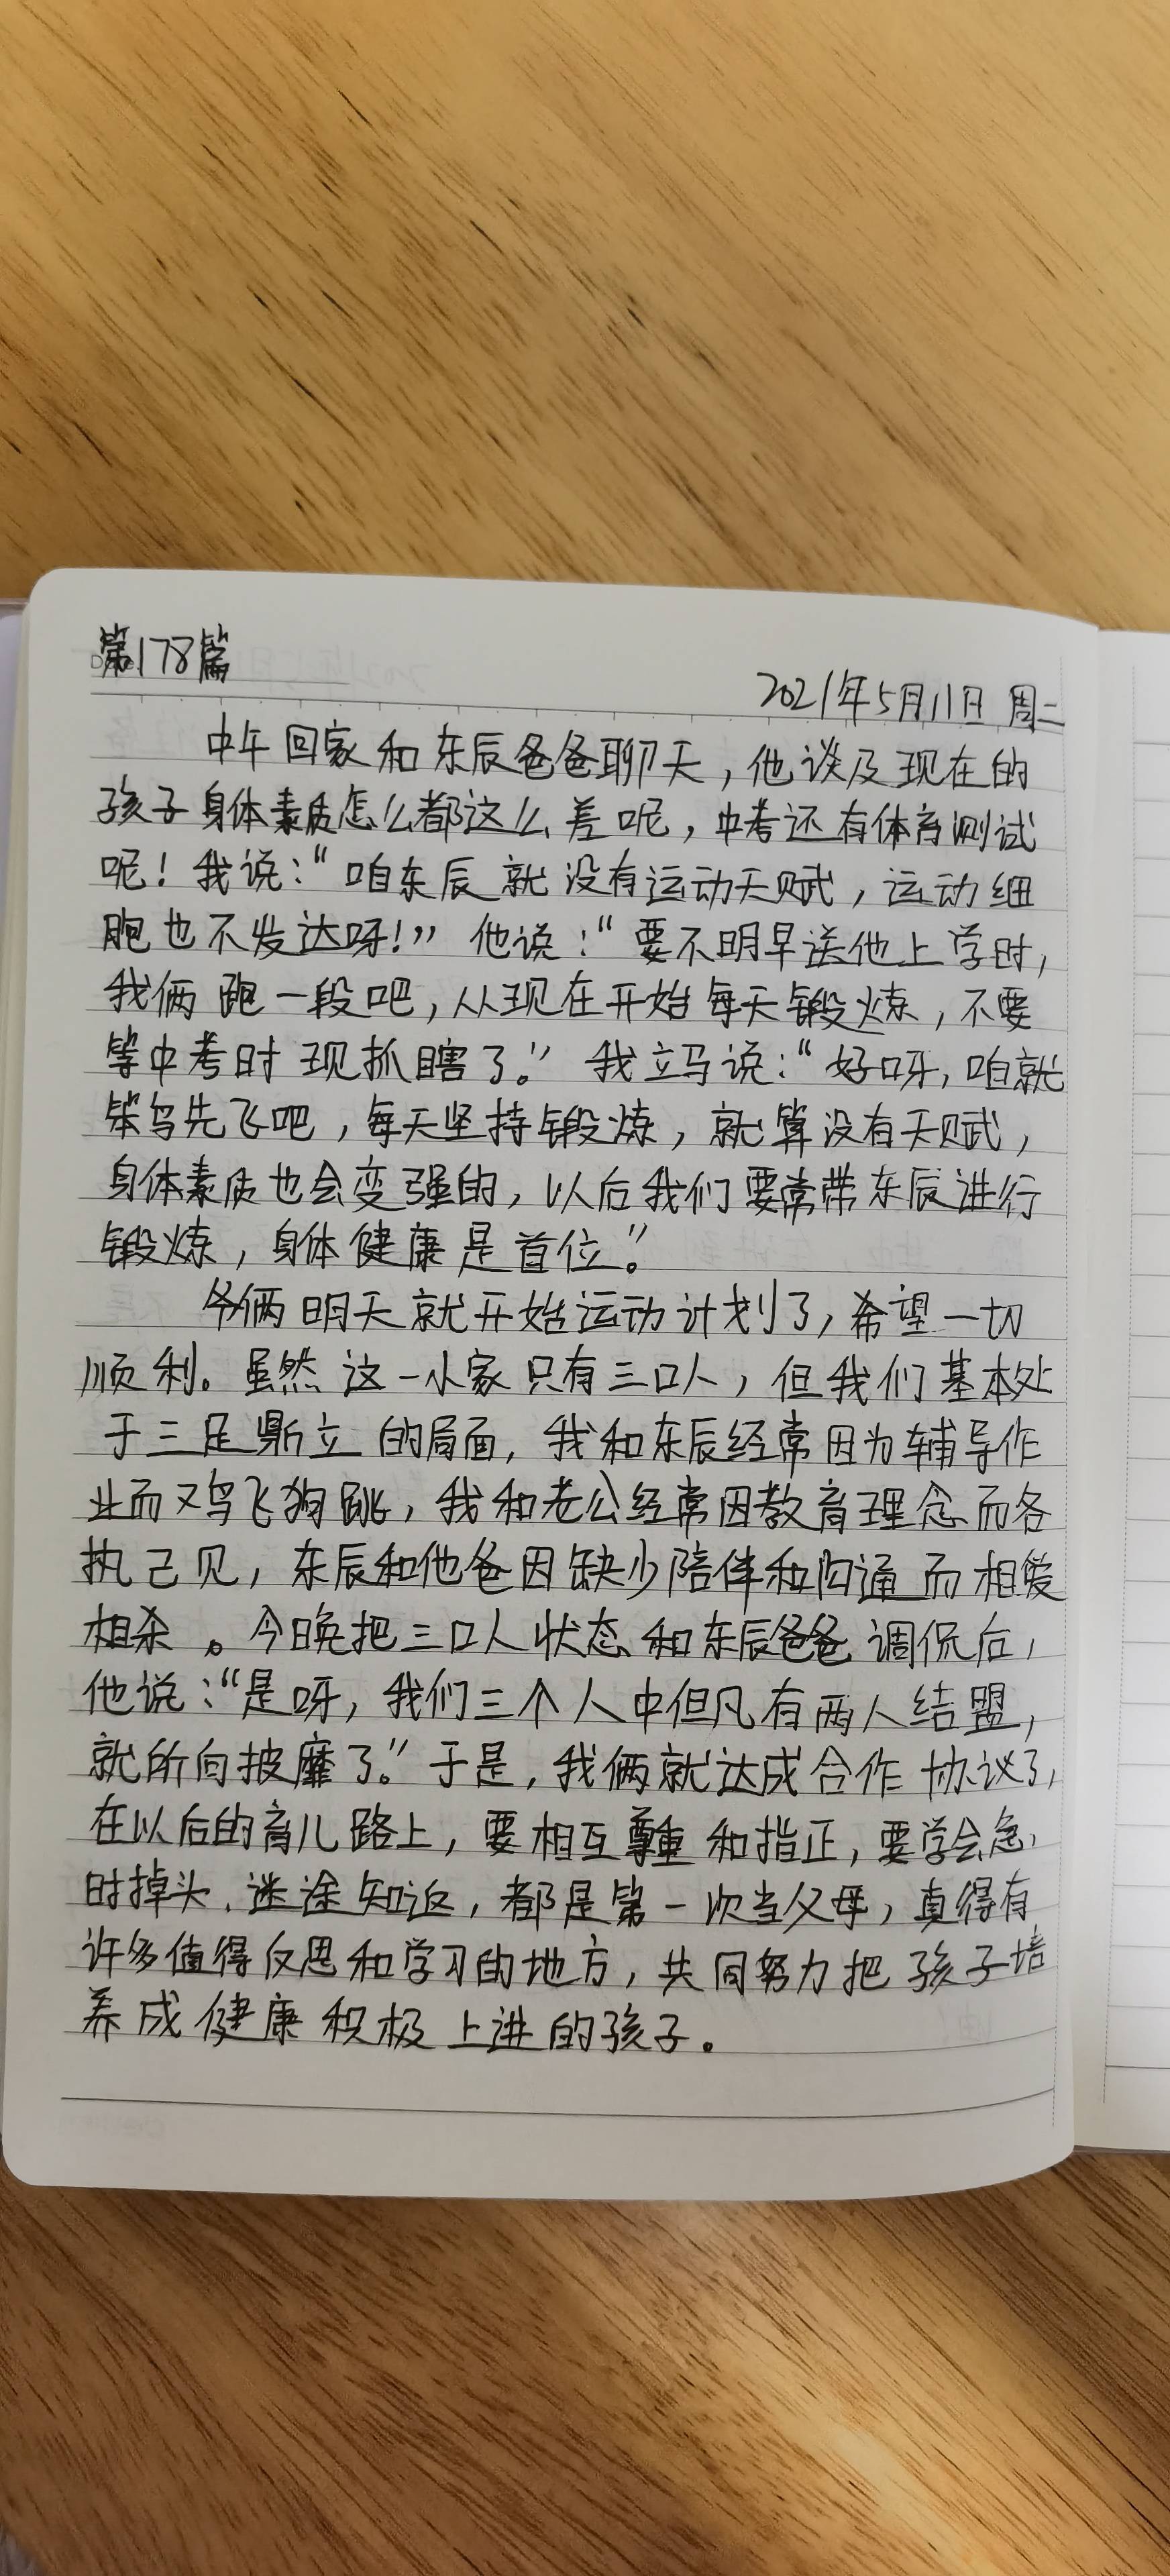 第178篇
2021年5月11日 周二
中午回家和东辰爸爸聊天，他谈及现在的
孩子身体素质怎么都这么差呢，中考还有体育测试
呢！我说：“咱东辰就没有运动天赋，运动细
胞也不发达呀！”他说：“要不明早送他上学时，
我俩跑一段吧，从现在开始每天锻炼，不要
等中考时现抓瞎了。”我立马说：“好呀，咱就
笨鸟先飞吧，每天坚持锻炼，就算没有天赋，
身体素质也会变强的，以后我们要常带东辰进行
锻炼，身体健康是首位。”
爷俩明天就开始运动计划了，希望一切
顺利。虽然这一小家只有三口人，但我们基本处
于三足鼎立的局面，我和东辰经常因为辅导作
业而鸡飞狗跳，我和老公经常因教育理念而各
执己见，东辰和他爸因缺少陪伴和沟通而相爱
相杀。今晚把三口人状态和东辰爸爸调侃后，
他说：“是呀，我们三个人中但凡有两人结盟，
就所向披靡了。”于是，我俩就达成合作协议了，
在以后的育儿路上，要相互尊重和指正，要学会急
时掉头、迷途知返，都是第一次当父母，真得有
许多值得反思和学习的地方，共同努力把孩子培
养成健康积极上进的孩子。